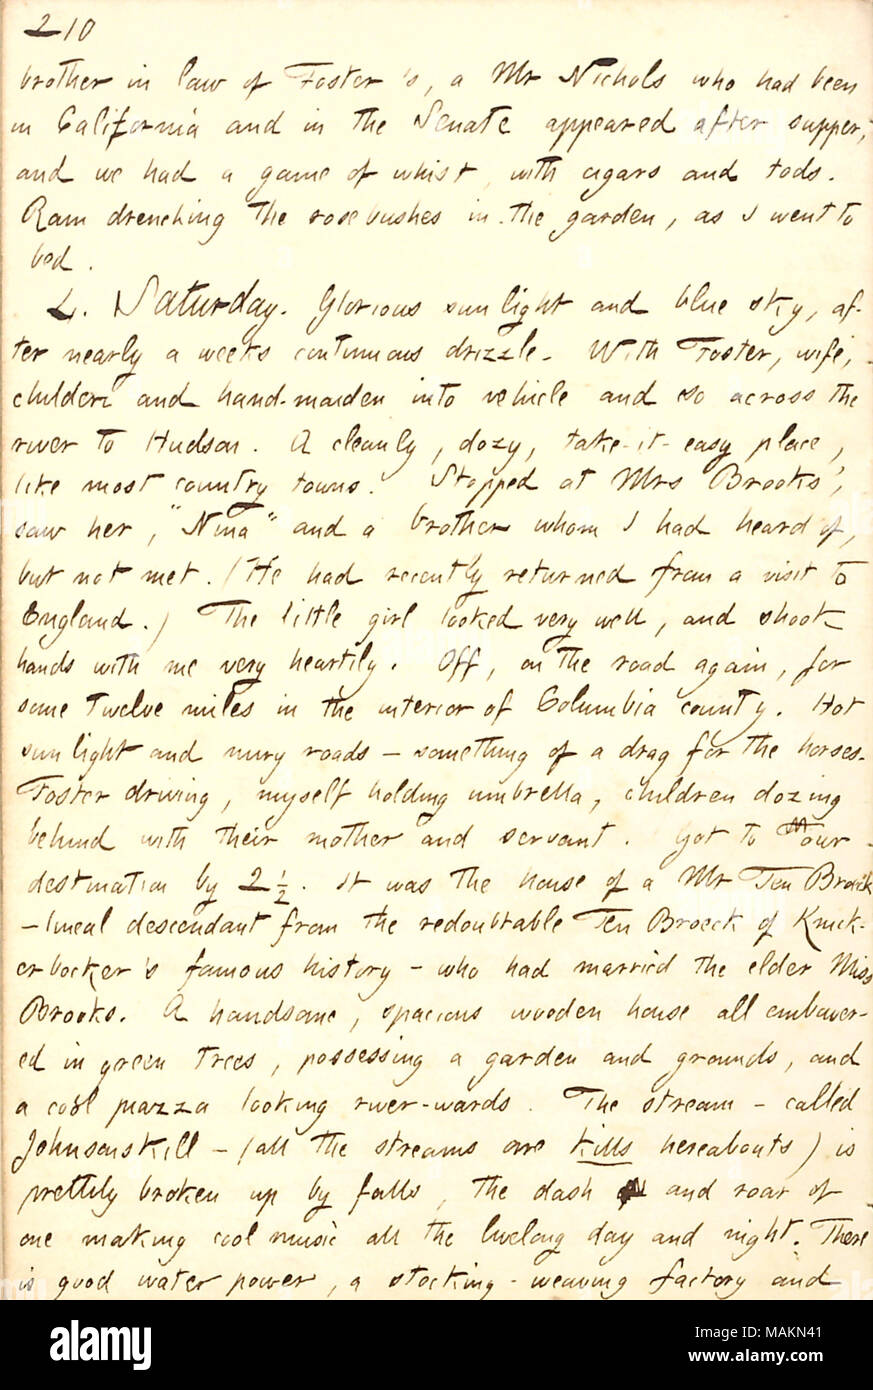 210
brother in law of Foster's, a Mr Nichols who had been
in California and in the Senate appeared after supper,
and we had a game of whist, with cigars and tods.
Rain drenching the rose bushes in the garden, as I went to
bed.
4. Saturday. Glorious sunlight and blue sky, af-
ter nearly a weeks continuous drizzle. With Foster, wife,
children and hand-maiden into vehicle and so across the
river to Hudson. A cleanly, dozy, take-it-easy place,
like most country towns. Stopped at Mrs Brooks',
saw her, "Nina" and a brother whom I had heard of,
but not met. (He had recently returned from a visit to
England.) The little girl looked very well, and shook
hands with me very heartily. Off, on the road again, for
some twelve miles in the interior of Columbia county. Hot
sunlight and miry roads — something of a drag for the horses.
Foster driving, myself holding umbrella, children dozing
behind with their mother and servant. Got to our
destination by 2 1/2. It was the house of a Mr Ten Broeck
— lineal descendant from the redoubtable Ten Broeck of Knick-
erbocker's famous history — who had married the elder Miss
Brooks. A handsome, spacious wooden house all embower-
ed in green trees, possessing a garden and grounds, and
a cool piazza looking river-wards. The stream — called
Johnsonskill — (all the streams are kills hereabouts) is
prettily broken up by falls, the dash and roar of
one making cool music all the livelong day and night. There
is good water power, a stocking-weaving factory and
alamy
Image ID: MAKN41
www.alamy.com